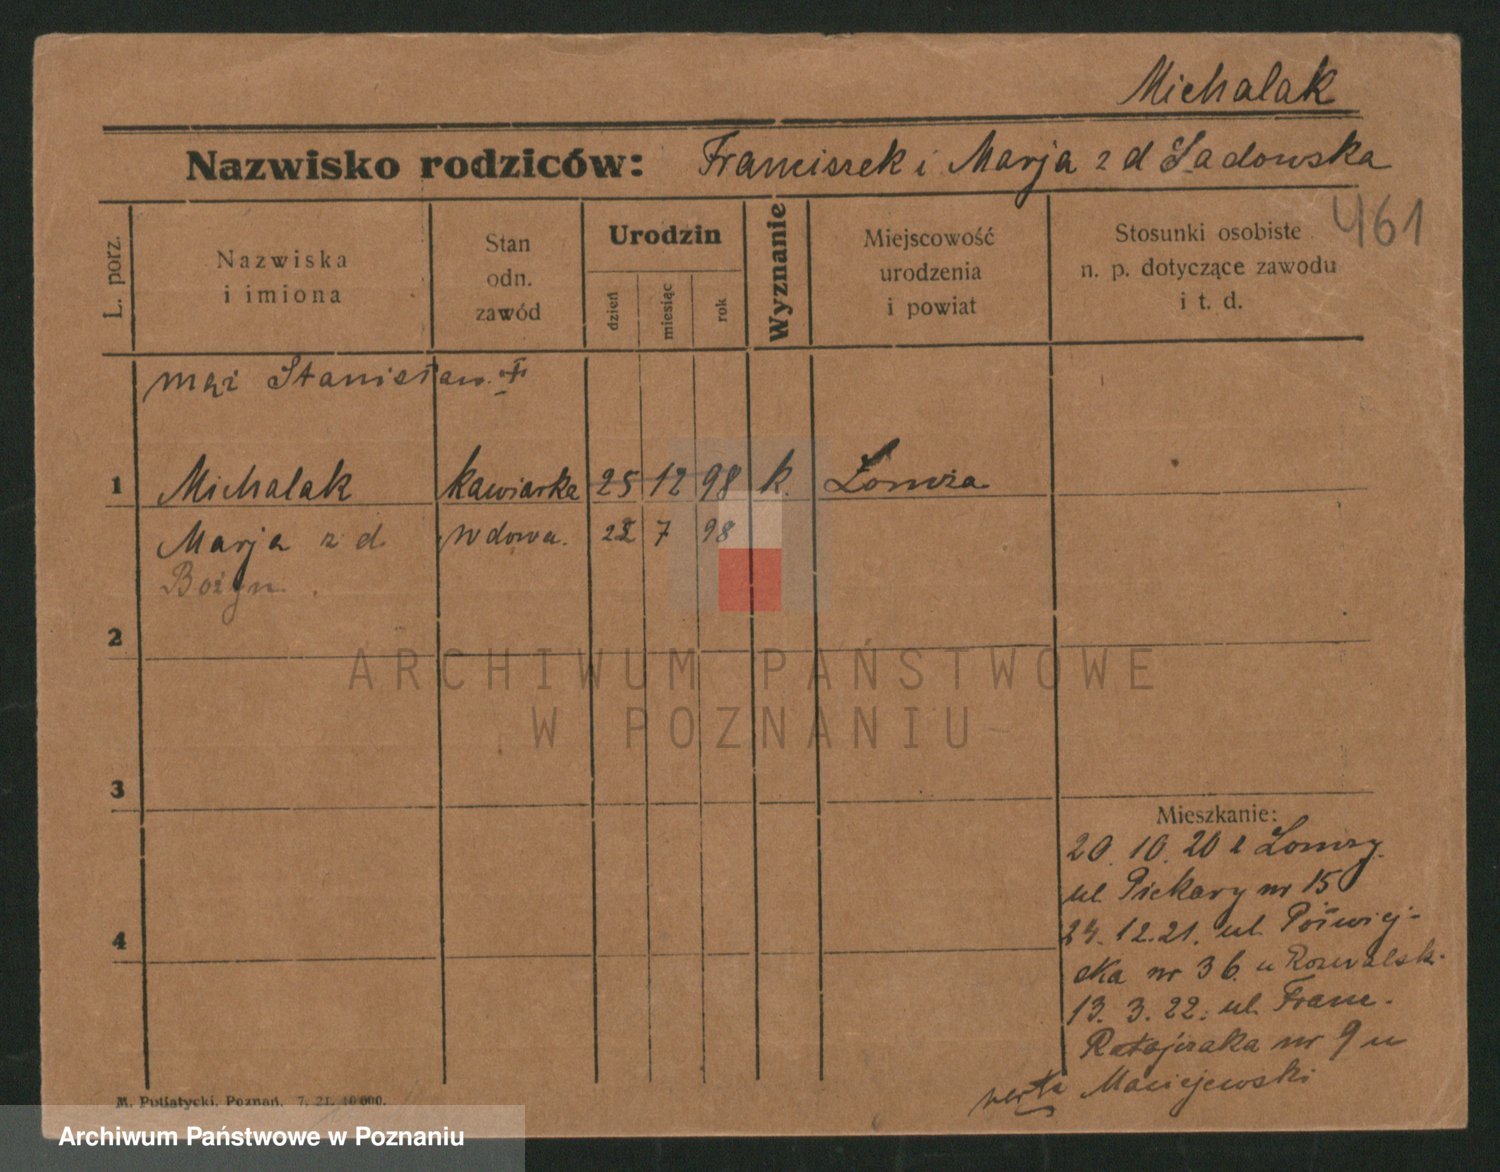 Michalak
Nazwisko rodziców: Franciszek i Marja z d Sadowska
461
L. porz.
Nazwiska
i imiona
Stan
odn.
zawód
Urodzin
dzień
miesiąc
rok
Wyznanie
Miejscowość
urodzenia
i powiat
Stosunki osobiste
n. p. dotyczące zawodu
i t. d.
mąż Stanisław
1 Michalak kawiarka 25 12 98 k. Łomża
Marja z d wdowa. 7 98
2
3
4
Mieszkanie:
20. 10. 20 z Łomży.
ul. Piekary nr 15
12.21. ul.
cka nr 36. u
13. 3. 22. ul. Franc.
Ratajczaka nr 9 u
Maciejewski
verte
M. Putiatycki, Poznań, 7. 21. 10 000.
ARCHIWUM PAŃSTWOWE
W POZNANIU
Archiwum Państwowe w Poznaniu